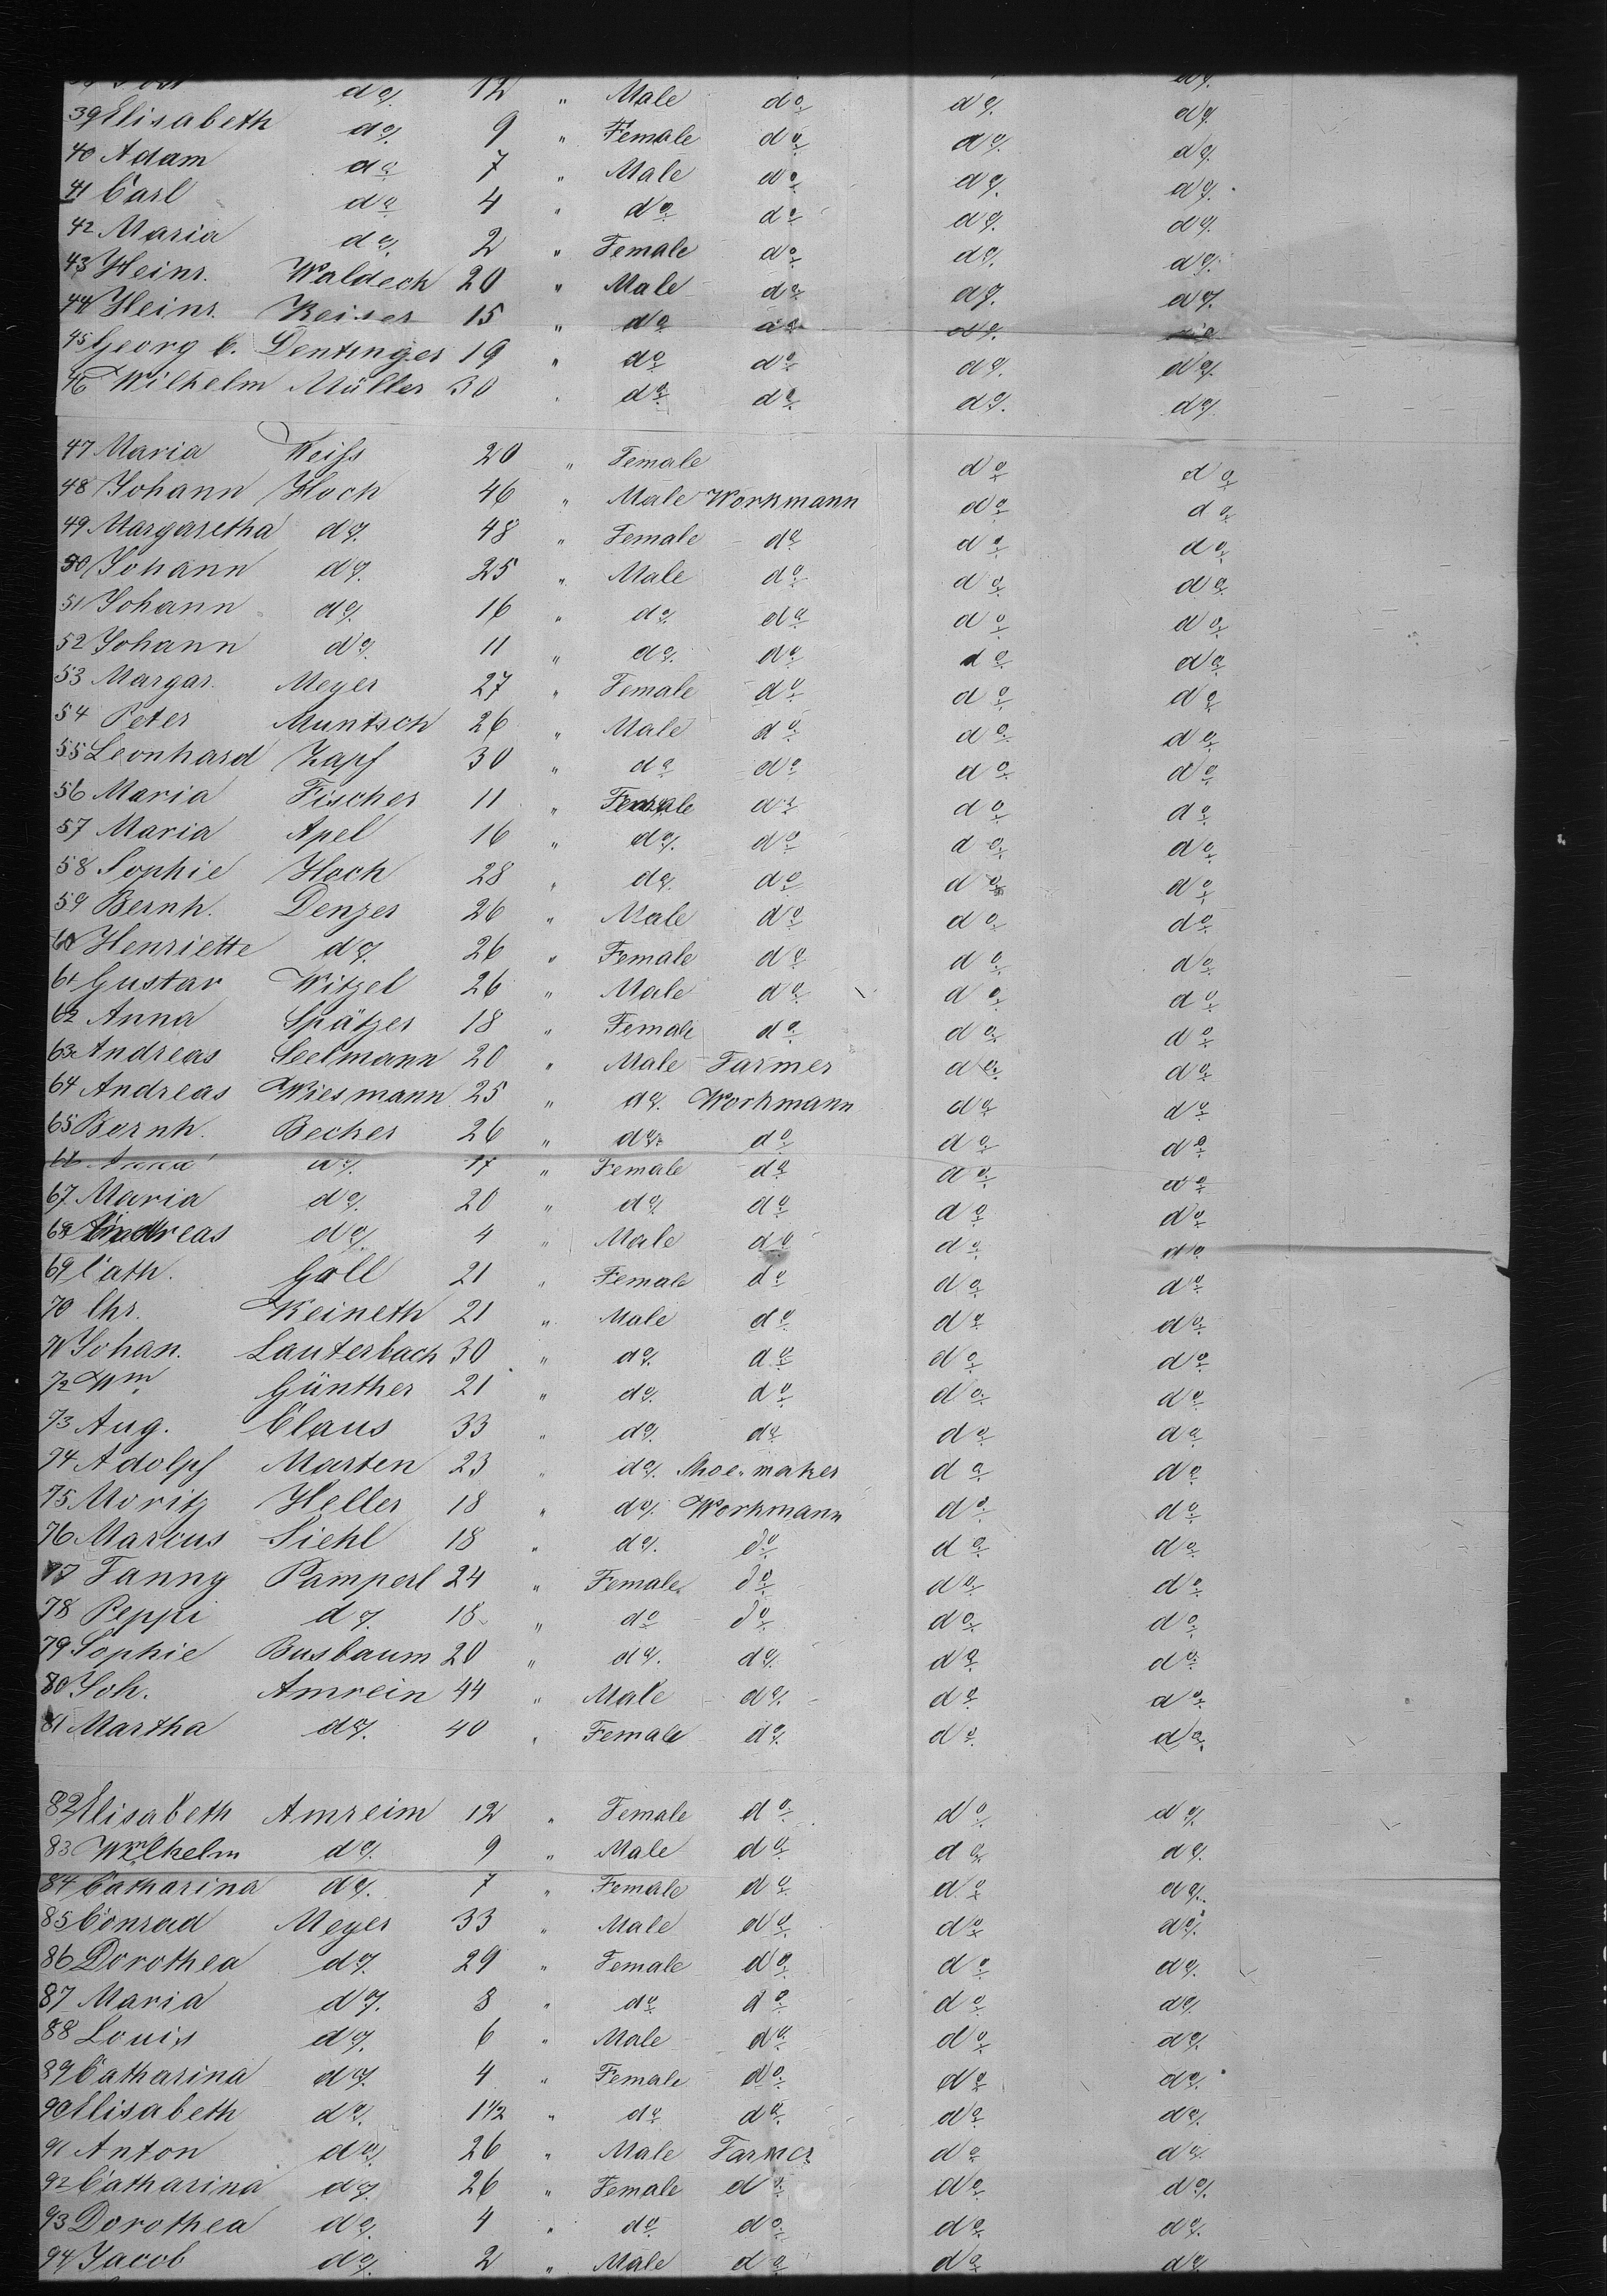 do 12 " Male do do do
39 Elisabeth do 9 " Female do do do
40 Adam do 7 " Male do do do
41 Carl do 4 " do do do do
42 Maria do 2 " Female do do do
43 Heinr. Waldeck 20 " Male do do do
44 Heinr. Keiser 15 " do do do do
45 Georg C. Dentinger 19 " do do do do
46 Wilhelm Müller 30 " do do do do
47 Maria Weiss 20 " Female do do
48 Johann Hoch 46 " Male Workmann do do
49 Margaretha do 48 " Female do do do
50 Johann do 25 " Male do do do
51 Johann do 16 " do do do do
52 Johann do 11 " do do do do
53 Margar. Meyer 27 " Female do do do
54 Peter Muntsch 26 " Male do do do
55 Leonhard Zapf 30 " do do do do
56 Maria Fischer 11 " Female do do do
57 Maria Apel 16 " do do do do
58 Sophie Hoch 28 " do do do do
59 Bernh. Denzer 26 " Male do do do
60 Henriette do 26 " Female do do do
61 Gustav Witzel 26 " Male do do do
62 Anna Spätzer 18 " Female do do do
63 Andreas Seelmann 20 " Male Farmer do do
64 Andreas Wiesmann 25 " do Workmann do do
65 Bernh. Becker 26 " do do do do
66 Anna do 17 " Female do do do
67 Maria do 20 " do do do do
68 Andreas do 4 " Male do do do
69 Cath. Goll 21 " Female do do do
70 Chr. Keineth 21 " Male do do do
71 Johan. Lauterbach 30 " do do do do
72 Wm Günther 21 " do do do do
73 Aug. Claus 33 " do do do do
74 Adolpf Marten 23 " do Shoe-maker do do
75 Moritz Heller 18 " do Workmann do do
76 Marcus Siehl 18 " do do do do
77 Fanny Pamperl 24 " Female do do do
78 Peppi do 18 " do do do do
79 Sophie Busbaum 20 " do do do do
80 Joh. Amrein 44 " Male do do do
81 Martha do 40 " Female do do do
82 Elisabeth Amreim 12 " Female do do do
83 Wilhelm do 9 " Male do do do
84 Catharina do 7 " Female do do do
85 Conrad Meyer 33 " Male do do do
86 Dorothea do 29 " Female do do do
87 Maria do 8 " do do do do
88 Louis do 6 " Male do do do
89 Catharina do 4 " Female do do do
90 Elisabeth do 1 1/2 " do do do do
91 Anton do 26 " Male Farmer do do
92 Catharina do 26 " Female do do do
93 Dorothea do 4 " do do do do
94 Jacob do 2 " Male do do do